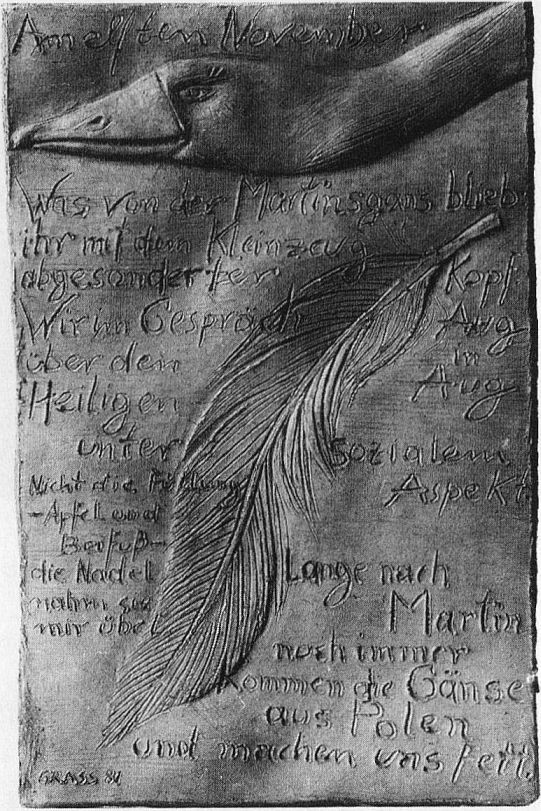 Am elften November
Was von der Martinsgans blieb:
ihr mit dem Kleinzeug
abgesonderter Kopf.
Wir im Gespräch Aug
über den in
Heiligen Aug
unter sozialem
Nicht die Füllung Aspekt.
-Apfel und
Beifuß-
die Nadel
nahm sie
mir übel
Lange nach
Martin
noch immer
kommen die Gänse
aus Polen
und machen uns fett.
GRASS 81